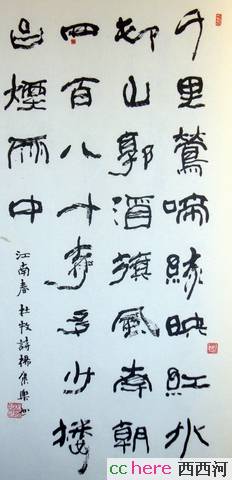 千里鶯啼綠映紅水
邨山郭酒旗風南朝
四百八十寺多少樓
臺煙雨中
江南春 杜牧詩
cchere 西西河